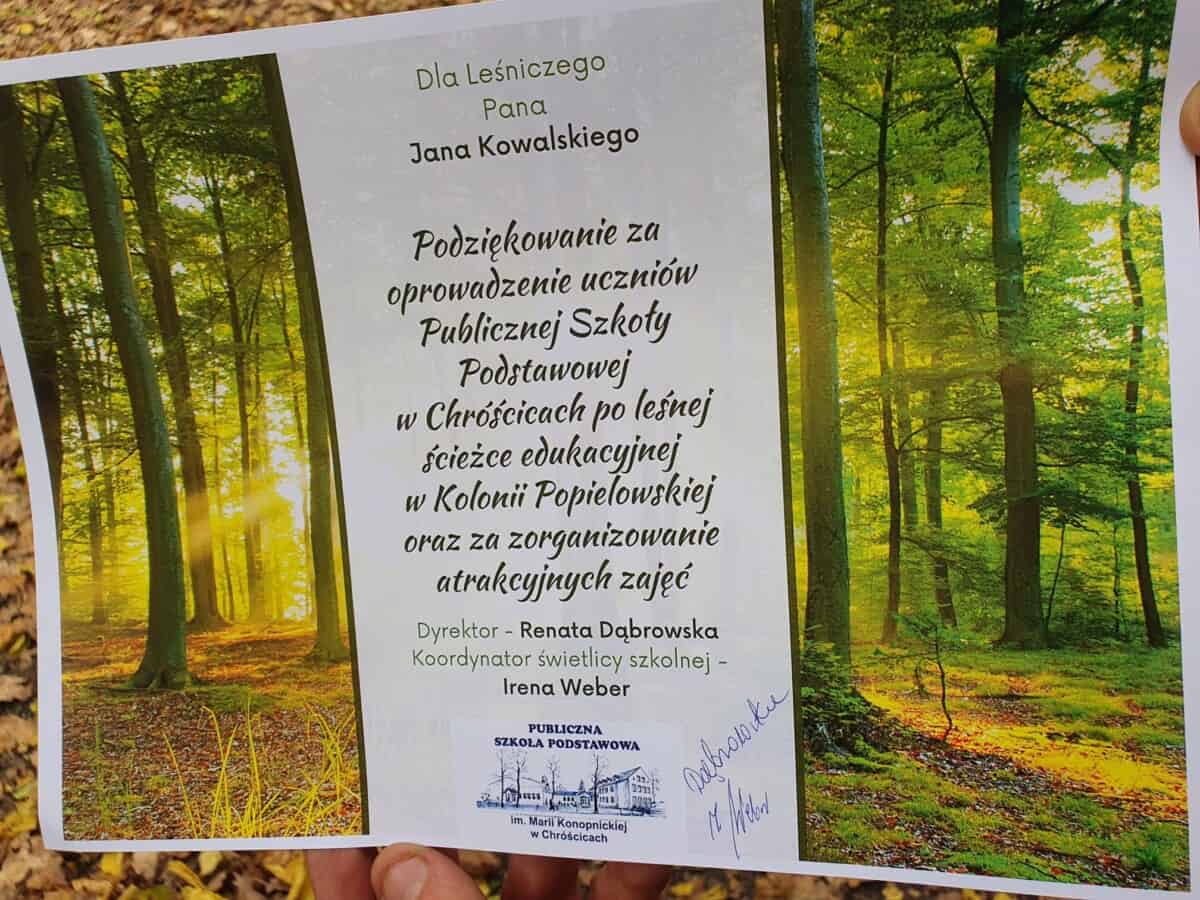 Dla Leśniczego
Pana
Jana Kowalskiego
Podziękowanie za
oprowadzenie uczniów
Publicznej Szkoły
Podstawowej
w Chróścicach po leśnej
ścieżce edukacyjnej
w Kolonii Popielowskiej
oraz za zorganizowanie
atrakcyjnych zajęć
Dyrektor - Renata Dąbrowska
Koordynator świetlicy szkolnej -
Irena Weber
PUBLICZNA
SZKOŁA PODSTAWOWA
im. Marii Konopnickiej
w Chróścicach
Dąbrowska
Weber